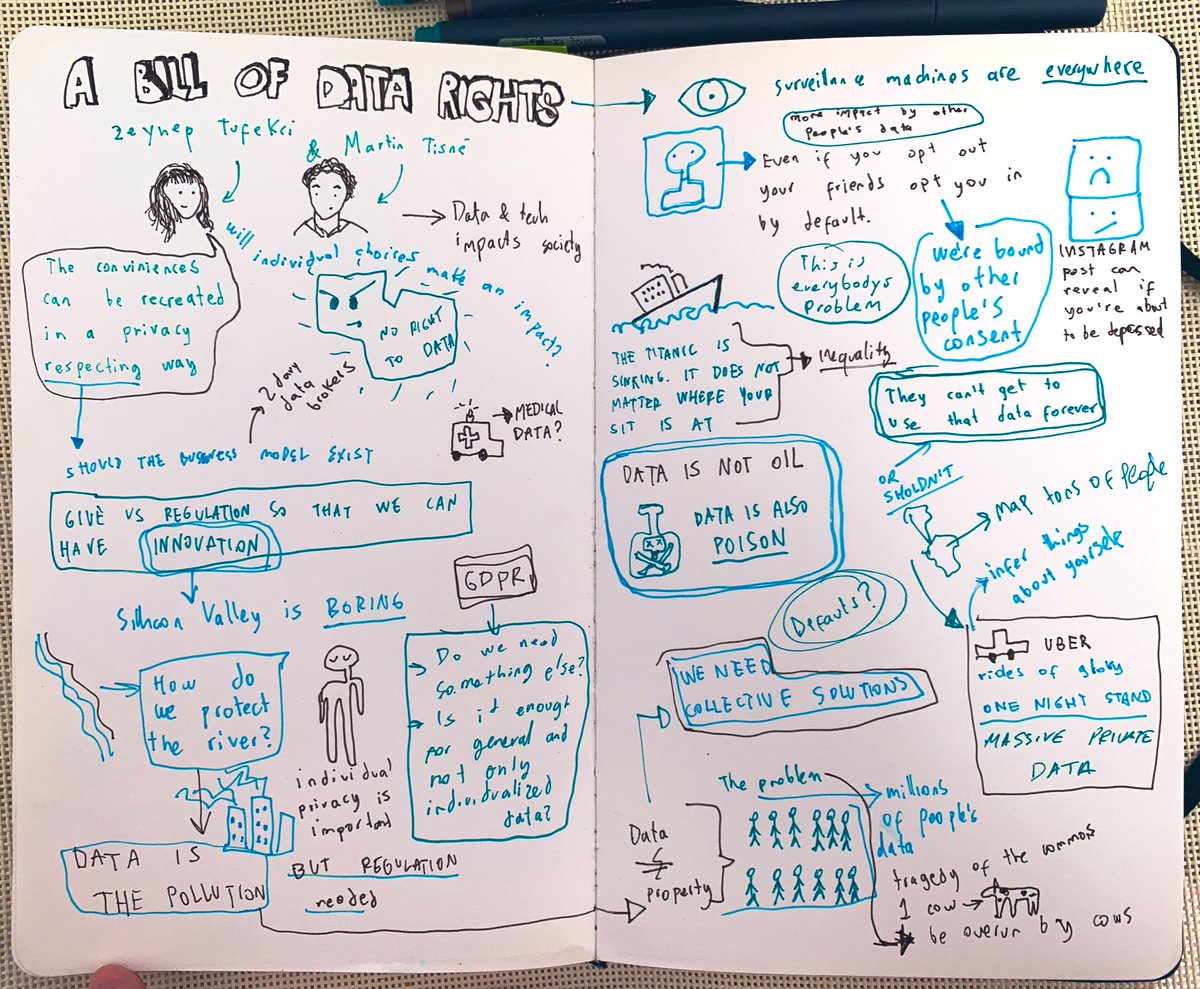 A BILL OF DATA RIGHTS
Zeynep Tufekci
& Martin Tisné
Data & tech
impacts society
The conviniences
can be recreated
in a privacy
respecting way
will individual choices make an impact?
NO RIGHT
TO DATA
2 day
data
brokers
MEDICAL
DATA?
SHOULD THE BUSINESS MODEL EXIST
GIVE US REGULATION SO THAT WE CAN
HAVE INNOVATION
Silicon Valley is BORING
GDPR
How do
we protect
the river?
individual
privacy is
important
Do we need
something else?
Is it enough
for general and
not only
individualized
data?
DATA IS
THE POLLUTION
BUT REGULATION
needed
surveilance machines are everywhere
more impact by other
people's data
Even if you opt out
your friends opt you in
by default.
This is
everybodys
problem
we're bound
by other
people's
consent
INSTAGRAM
post can
reveal if
you're about
to be depessed
THE TITANIC IS
SINKING. IT DOES NOT
MATTER WHERE YOUR
SIT IS AT
inequality
They can't get to
use that data forever
OR
SHOLDN'T
DATA IS NOT OIL
DATA IS ALSO
POISON
map tons of people
infer things
about yourself
Defauts?
WE NEED
COLLECTIVE SOLUTIONS
UBER
rides of glory
ONE NIGHT STAND
MASSIVE PRIVATE
DATA
The problem
millions
of people's
data
Data
≠
property
tragedy of the commons
1 cow
be overun by cows